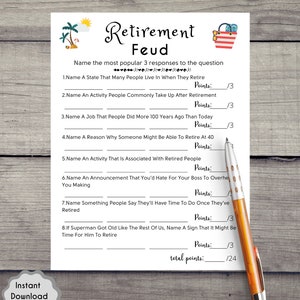 Retirement
Feud
Name the most popular 3 responses to the question
1.Name A State That Many People Live In When They Retire
Points: /3
2.Name An Activity People Commonly Take Up After Retirement
Points: /3
3.Name A Job That People Did More 100 Years Ago Than Today
Points: /3
4.Name A Reason Why Someone Might Be Able To Retire At 40
Points: /3
5.Name An Activity That Is Associated With Retired People
Points: /3
6.Name An Announcement That You'd Hate For Your Boss To Overhe
You Making
Points: /3
7.Name Something People Say They'll Have Time To Do Once They've
Retired
Points: /3
8.If Superman Got Old Like The Rest Of Us, Name A Sign That It Might Be
Time For Him To Retire
Points: /3
total points: /24
Instant
Download